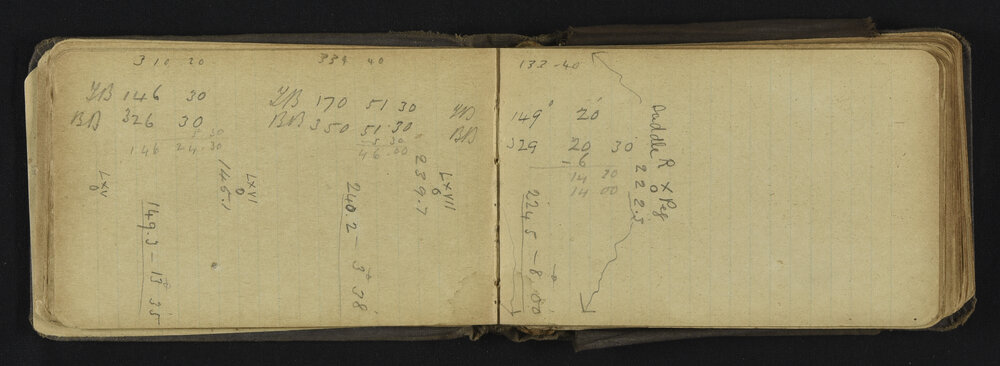 310 20
146 30
BB 326 30
146 24.30
LXV
0
149.3 - 15 35
LXVI
0
146.1
334 40
170 51 30
BB 350 51.30
5 30
46.00
240.2 - 5 38
239.7
LXVII
0
133 - 40
149° 20
BB 329 20 30
6
14 20
14 00
224.5 - 8.00
Saddle R X Peg
0
222.5